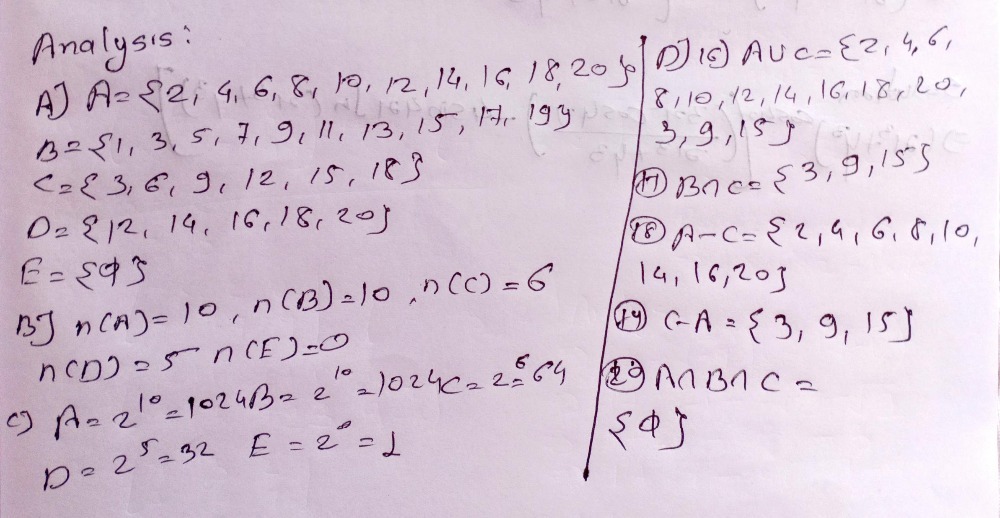 Analysis:
A] A = {2, 4, 6, 8, 10, 12, 14, 16, 18, 20}
B = {1, 3, 5, 7, 9, 11, 13, 15, 17, 19}
C = {3, 6, 9, 12, 15, 18}
D = {12, 14, 16, 18, 20}
E = {Φ}
B] n(A) = 10, n(B) = 10, n(C) = 6
n(D) = 5 n(E) = 0
C) A = 2¹⁰ = 1024 B = 2¹⁰ = 1024 C = 2⁶ = 64
D = 2⁵ = 32 E = 2⁰ = 1
D] 16) A∪C = {2, 4, 6,
8, 10, 12, 14, 16, 18, 20,
3, 9, 15}
17 B∩C = {3, 9, 15}
18 A-C = {2, 4, 6, 8, 10,
14, 16, 20}
19 C-A = {3, 9, 15}
20 A∩B∩C =
{Φ}